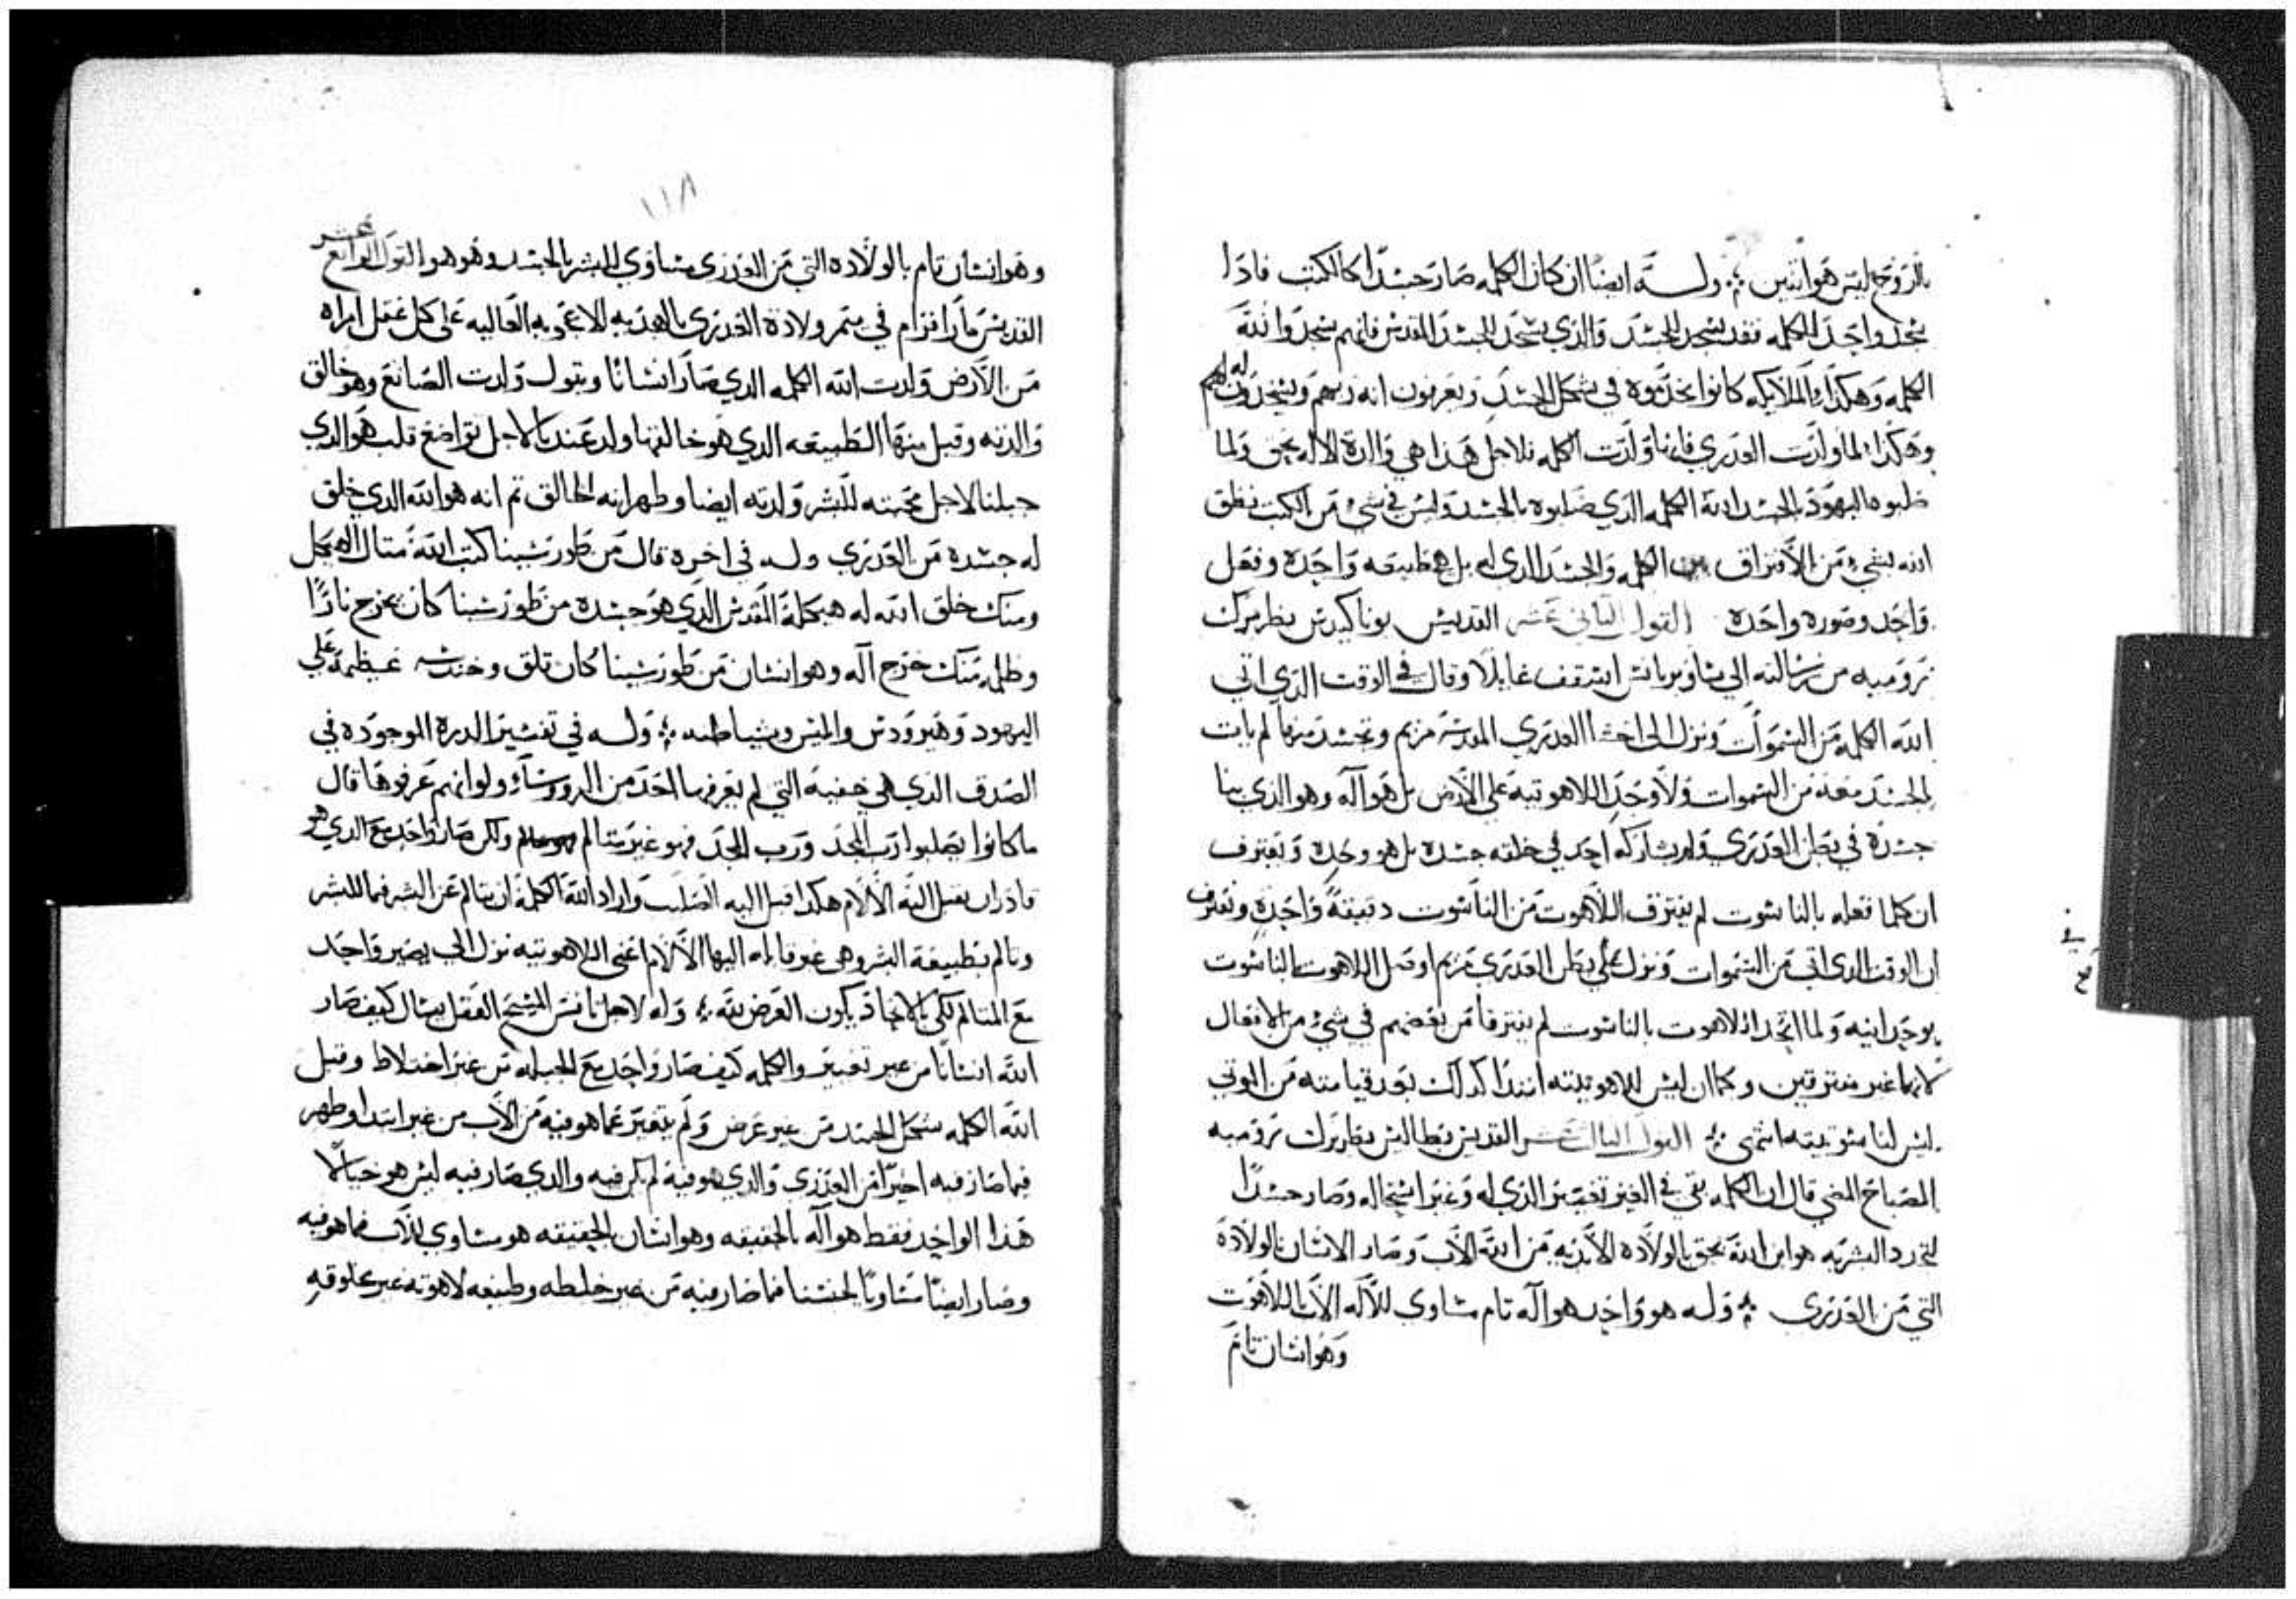 بالروح ليس هو اثنين ⁘ وله ايضًا ان كان الكلمه صار جسدًا كالكتب فاذا
سجد واحد للكلمه فقد سجد للجسد والذي يسجد للجسد المقدس فانهم سجدوا لله
الكلمه وهكذا والملايكه كانوا يخدموه في شكل الجسد ويعرفون انه ربهم ويسجدون له
وهكذا لما ولدت العدري فانها ولدت الكلمه فلاجل هذا هي والدة الاله بحق ولما
صلبوه اليهود بالجسد الله الكلمه الذي صلبوه بالجسد وليس في شي من الكتب نطق
الله بشي من الافتراق بين الكلمه والجسد الذي له بل هي طبيعه واحده وفعل
واحد وصوره واحده القول الثاني عشر القديس يوناكيدس بطريرك
تروميه من رسالته الي اسقف وقال في الوقت الذي اتي
الله الكلمه من السموات ونزل الي احشا العدري القديسه مريم وتجسد منها لم يات
الجسد معه من السموات ولا وجد اللاهوتيه علي الارض بل هو آله وهو الذي بنا
جسده في بطن العدري ولم يشاركه احد في خلقه جسده بل هو وحده ونعترف
ان كلما فعله بالناسوت لم يفترق اللاهوت من الناسوت دقيقةً واحده ونعترف
ان الوقت الذي اتي من السموات ونزل علي بطن العدري مريم اوصل اللاهوت بالناسوت
بوحدانيه ولما اتحد اللاهوت بالناسوت لم يفترقا من بعضهم في شي من الافعال
لانهما غير مفترقين وكما ان ليس للاهوتيته ابتدا كذلك بعد قيامته من الموتي
ليس لناسوتيته انتهي ⁘ القول الثالث عشر القديس بطاليس بطريرك تروميه
المصباح المضي قال ان الكلمه بقي في الغير تغيير الذي له وغير استحاله وصار جسدًا
هو ابن الله بحق بالولاده الازليه من الله الآب وصار الانسان بالولاده
التي من العدري ⁘ وله هو واحد هو آله تام مساوي للآله الآب باللاهوت
وهو انسان تام
١١٨
وهو انسان تام بالولاده التي من العدري مساوي للبشر بالجسد وهو هو القول الرابع عشر
القديس مار افرام في ميمر ولادة العدري بالهديه الاعجوبه العاليه علي كل عقل امراه
من الارض ولدت الله الكلمه الذي صار انسانًا ويقول ولدت الصانع وهو خالق
والدته وقبل منها الطبيعه الذي هو خالقها ولد عندنا لاجل تواضع قلبه هو الذي
جبلنا لاجل محبته للبشر ولدته ايضا وطهر انه الخالق ثم انه هو الله الذي خلق
له جسده من العدري وله في اخره قال من طور سينا كتب الله مثال الهيكل
ومنك خلق الله له هيكله المقدس الذي هو جسده من طور سينا كان يخرج نارًا
وظلمه منك خرج آله وهو انسان من طور سينا كان قلق عظيمه علي
اليهود وهيرودس وابليس وشياطينه ⁘ وله في تفسير الدره الموجوده في
الصدف الذي هي خفيه التي لم يعرفها احد من الروسآء ولو انهم عرفوها قال
ما كانوا يصلبوا رب المجد ورب المجد فهو غير متالم ولكن صار واحد مع الذي هو
قادر ان يقبل اليه الآلام هكذا قبل اليه الصلب واراد الله الكلمه ان يتالم عن البشر
وتالم بطبيعة البشر اليها الآلام اعني اللاهوتيه نزل الي يصير واحد
مع المتالم لكي بالاتحاد يكون العرض لله ⁘ وله لاجل تانس المسيح العقل يسال كيف صار
الله انسانًا من غير تغيير والكلمه كيف صار واحد مع الجبله من غير اختلاط وقبل
الله الكلمه شكل الجسد من غير عرض ولم يتغير عما هو فيه من الآب من غير ابتدا وظهر
فيما صار فيه اخيرًا من العدري والذي هو فيه لم يكن فيه والذي صار فيه ليس هو خيالًا
هذا الواحد فقط هو آله بالحقيقه وهو انسان بالحقيقه هو مساوي للآب فيما هو فيه
وصار ايضًا مساويًا لجنسنا فيما صار فيه من غير خلطه وطبيعه لاهوته غير مخلوقه